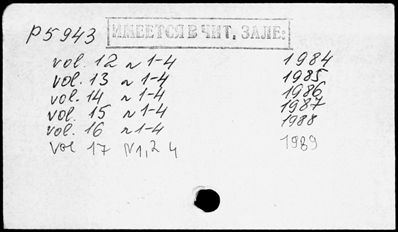 P5943
ИМЕЕТСЯ В ЧИТ. ЗАЛЕ:
vol. 12 n 1-4 1984
vol. 13 n 1-4 1985
vol. 14 n 1-4 1986
vol. 15 n 1-4 1987
vol. 16 n 1-4 1988
vol 17 N1,2 4 1989